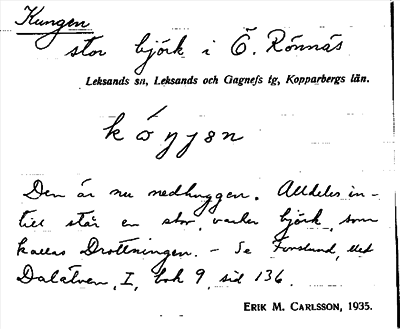 Kungen
stor björk i Ö. Rönnäs
Leksands sn, Leksands och Gagnefs tg, Kopparbergs län.
Den är nu nedhuggen. Alldeles in-
till står en stor, vacker björk, som
kallas Drottningen. – Se Forslund, Med
Dalälven, I, bok 9, sid 136.
ERIK M. CARLSSON, 1935.